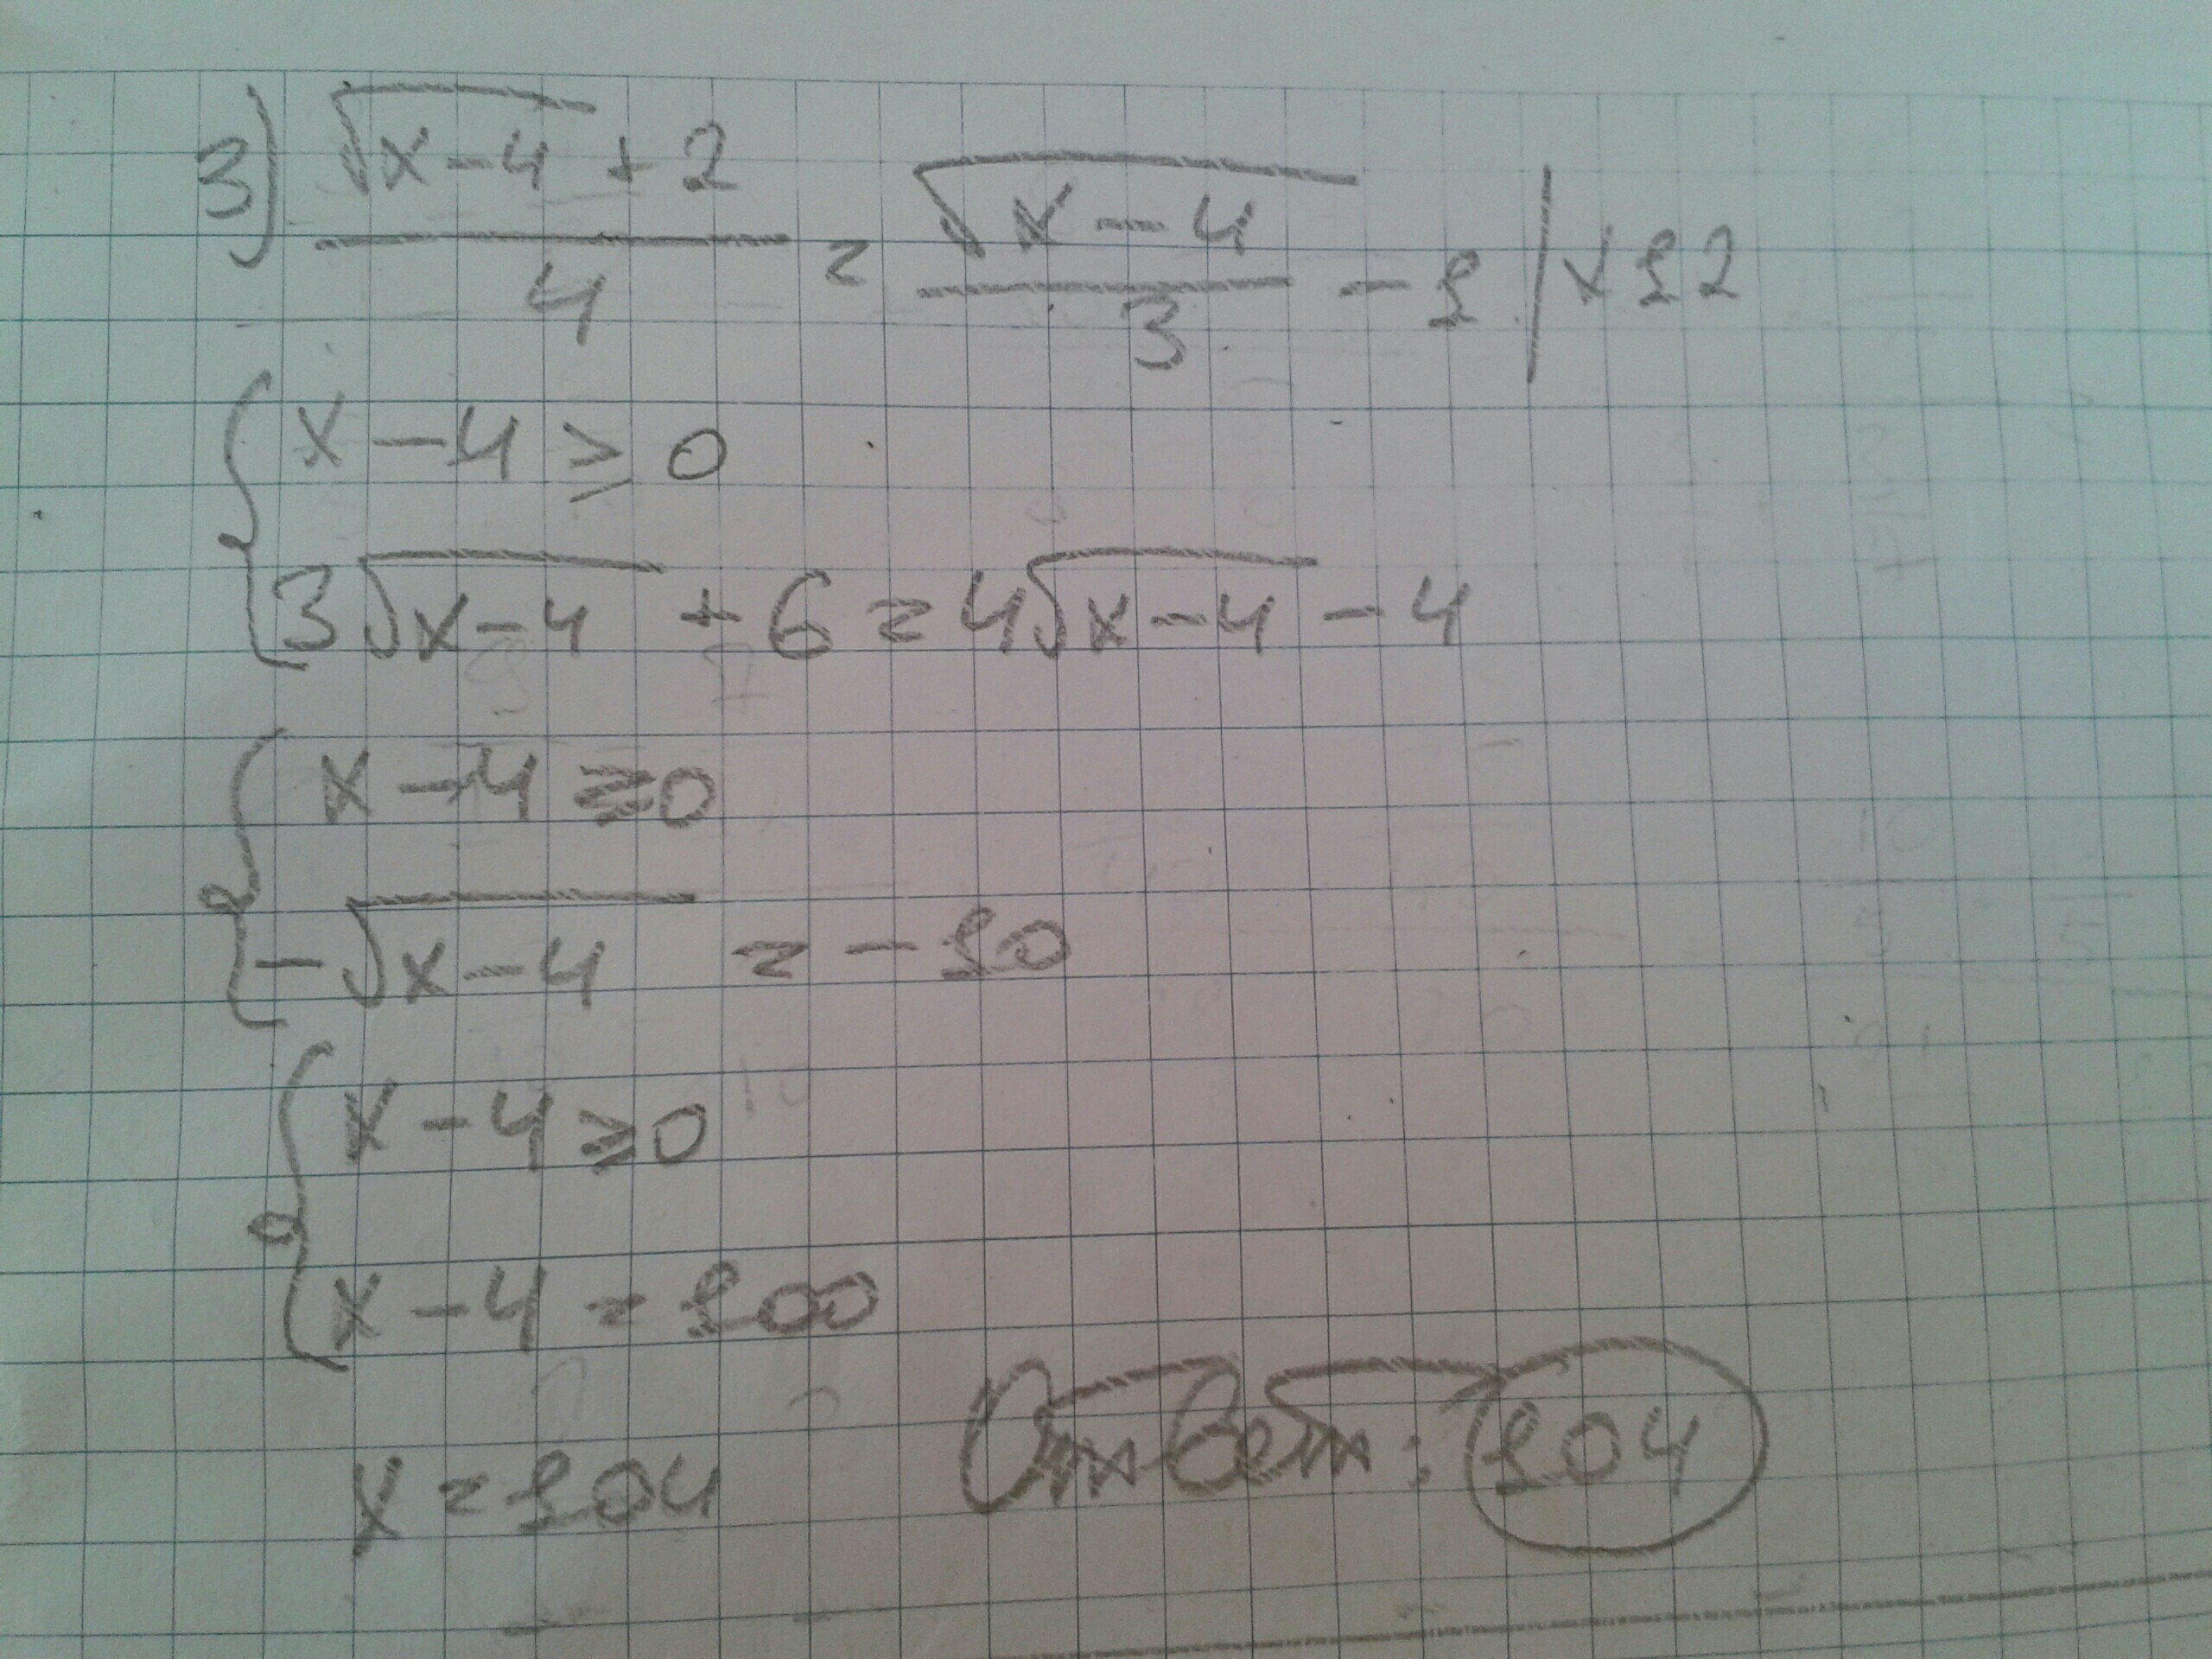 3) (√(x-4) + 2)/4 = √(x-4)/3 - 1 | × 12
{ x - 4 ≥ 0
3√(x-4) + 6 = 4√(x-4) - 4
{ x - 4 ≥ 0
-√(x-4) = -10
{ x - 4 ≥ 0
x - 4 = 100
x = 104
Ответ: 104